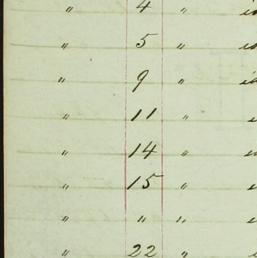 " 4 "
" 5 "
" 9 "
" 11 "
" 14 "
" 15 "
" " "
" 22 "